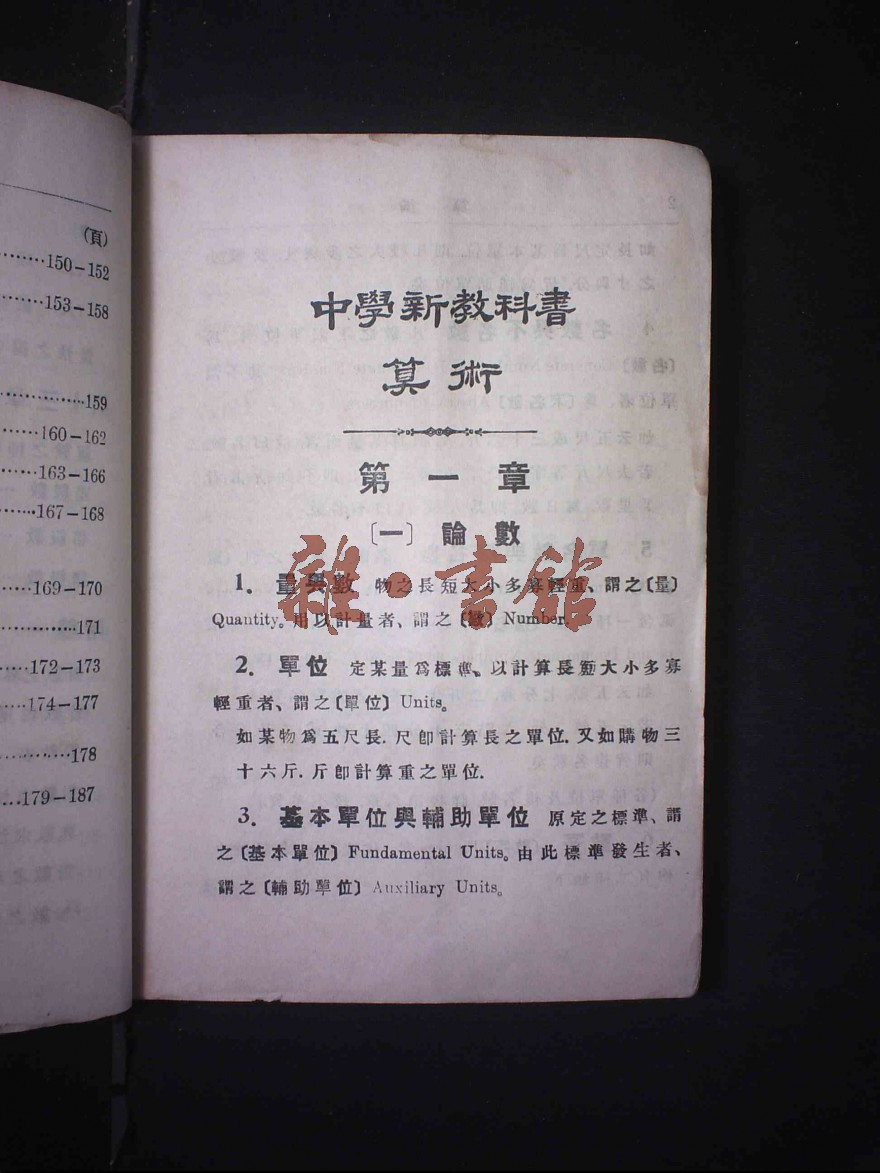 (頁)
150-152
153-158
159
160-162
163-166
167-168
169-170
171
172-173
174-177
178
179-187
中學新教科書
算術
第一章
〔一〕 論數
1. 量與數 物之長短大小多寡輕重、謂之〔量〕
Quantity。用以計量者、謂之〔數〕Number.
2. 單位 定某量爲標準、以計算長短大小多寡
輕重者、謂之〔單位〕Units。
如某物爲五尺長.尺卽計算長之單位.又如購物三
十六斤.斤卽計算重之單位.
3. 基本單位與輔助單位 原定之標準、謂
之〔基本單位〕Fundamental Units。由此標準發生者、
謂之〔輔助單位〕Auxiliary Units。
雜·書館